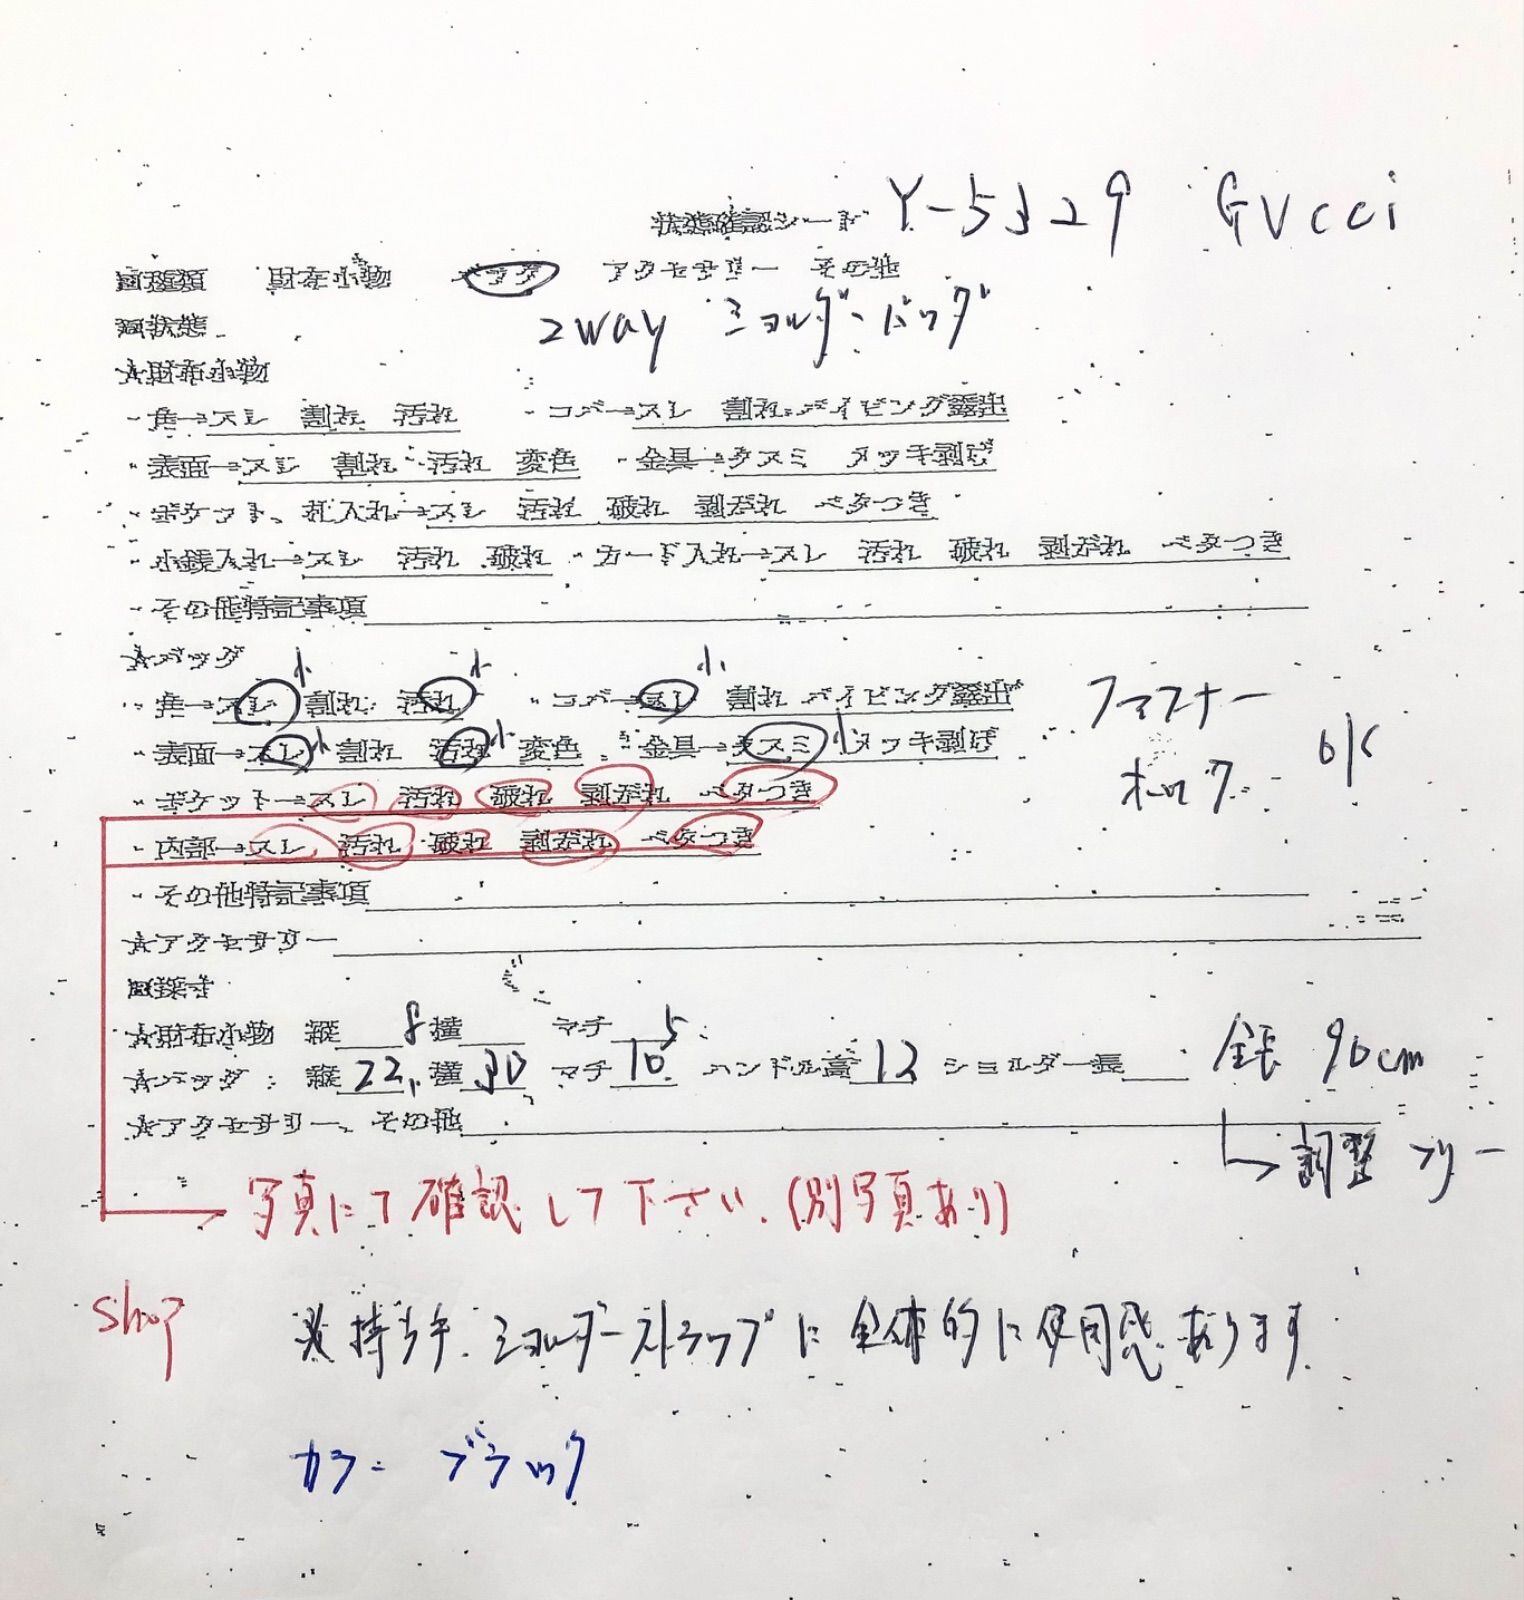 状態確認シート Y-5329 GUCCI
■種類 財布小物 バッグ アクセサリー その他
■状態 2way ショルダーバッグ
☆財布小物
・角→スレ 割れ 汚れ ・コバ→スレ 割れ パイピング露出
・表面→スレ 割れ 汚れ 変色 ・金具→クスミ メッキ剥げ
・ポケット、札入れ→スレ 汚れ 破れ 剥がれ ベタつき
・小銭入れ→スレ 汚れ 破れ ・カード入れ→スレ 汚れ 破れ 剥がれ ベタつき
・その他特記事項
☆バッグ
小 小 小
・角→スレ 割れ 汚れ ・コバ→スレ 割れ パイピング露出 ファスナー
・表面→スレ 小 割れ 汚れ 小 変色 ・金具→クスミ 小 メッキ剥げ OK
・ポケット→スレ 汚れ 破れ 剥がれ ベタつき ホック
・内部→スレ 汚れ 破れ 剥がれ ベタつき
・その他特記事項
☆アクセサリー
■採寸
☆財布小物 縦 8 横 マチ 5
☆バッグ：縦 22 横 30 マチ 10 ハンドル高 12 ショルダー長 全長 90cm
☆アクセサリー、その他
→調整 フリー
→写真にて確認して下さい.(別写真あり)
shop 持ち手 ショルダーストラップに全体的に使用感あります
カラー ブラック